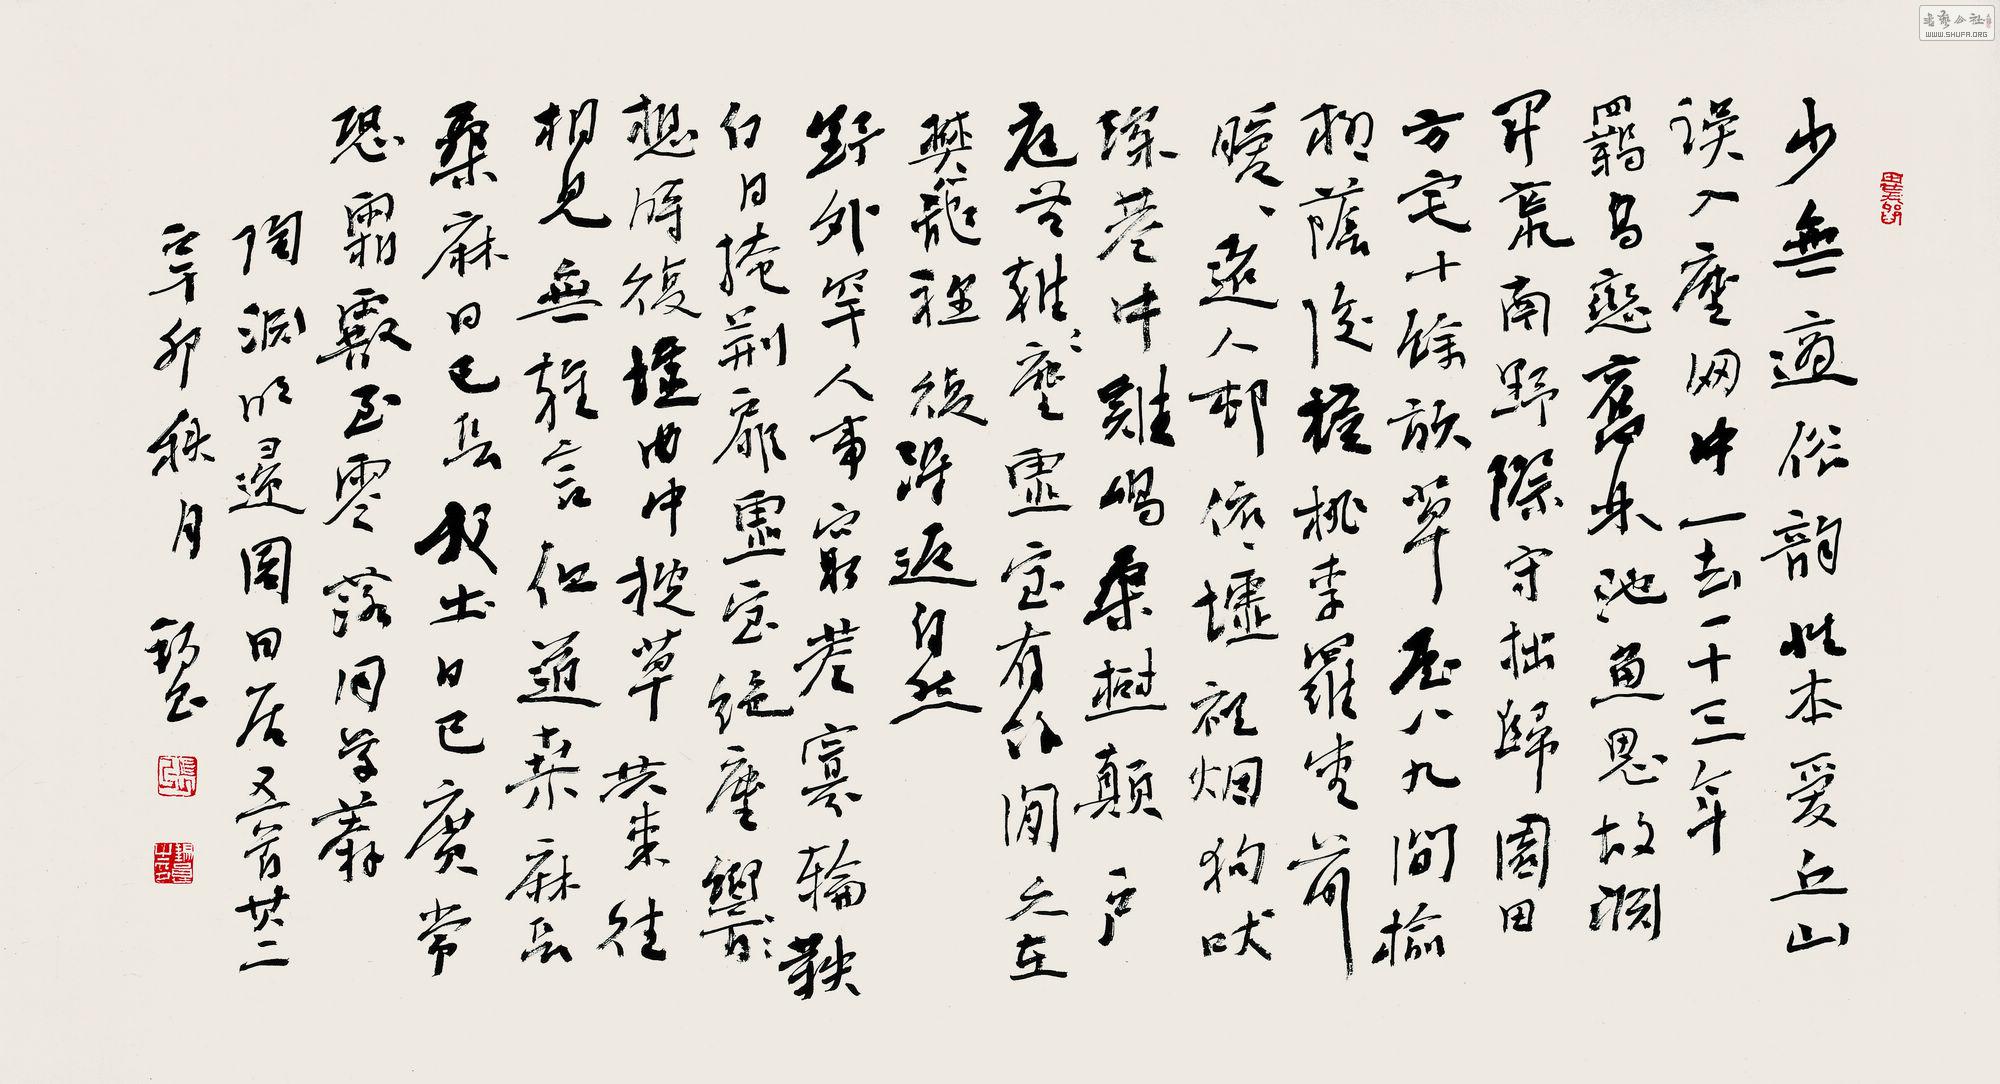 少無適俗韻性本愛丘山
误入塵网中一去一十三年
羈鳥戀舊林池魚思故淵
開荒南野際守拙歸園田
方宅十餘畝草屋八九間榆
柳蔭後檐桃李羅堂前
曖曖遠人邨依依墟裡烟狗吠
深巷中雞鳴桑樹顛户
庭無雜塵虛室有餘閒久在
樊籠裡復得返自然
野外罕人事窮巷寡輪鞅
白日掩荊扉虛室絕塵響
想時復墟曲中披草共来往
相見無雜言但道桑麻長
桑麻日已長我土日已廣常
恐霜霰至零落同草莽
陶淵明歸園田居五首其二
辛卯秋月
書藝公社
WWW.SHUFA.ORG